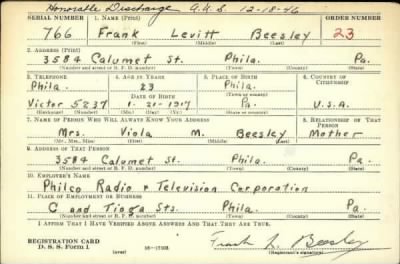 Honorable Discharge A.U.S. 12-18-46
SERIAL NUMBER 1. NAME (Print) ORDER NUMBER
766 Frank Levitt Beesley 23
(First) (Middle) (Last)
2. ADDRESS (Print)
3584 Calumet St. Phila. Pa.
(Number and street or R. F. D. number) (Town) (County) (State)
3. TELEPHONE 4. AGE IN YEARS 5. PLACE OF BIRTH 6. COUNTRY OF CITIZENSHIP
Phila. 23 Phila.
DATE OF BIRTH (Town or county)
Victor 5237 1-21-1917 Pa. U.S.A.
(Exchange) (Number) (Mo.) (Day) (Yr.) (State or country)
7. NAME OF PERSON WHO WILL ALWAYS KNOW YOUR ADDRESS 8. RELATIONSHIP OF THAT PERSON
Mrs. Viola M. Beesley Mother
(Mr., Mrs., Miss) (First) (Middle) (Last)
9. ADDRESS OF THAT PERSON
3584 Calumet St. Phila. Pa.
(Number and street or R. F. D. number) (Town) (County) (State)
10. EMPLOYER'S NAME
Philco Radio & Television Corporation
11. PLACE OF EMPLOYMENT OR BUSINESS
C and Tioga Sts. Phila. Pa.
(Number and street or R. F. D. number) (Town) (County) (State)
I AFFIRM THAT I HAVE VERIFIED ABOVE ANSWERS AND THAT THEY ARE TRUE.
REGISTRATION CARD
D. S. S. Form 1 (over) Frank L. Beesley
(Registrant's signature)